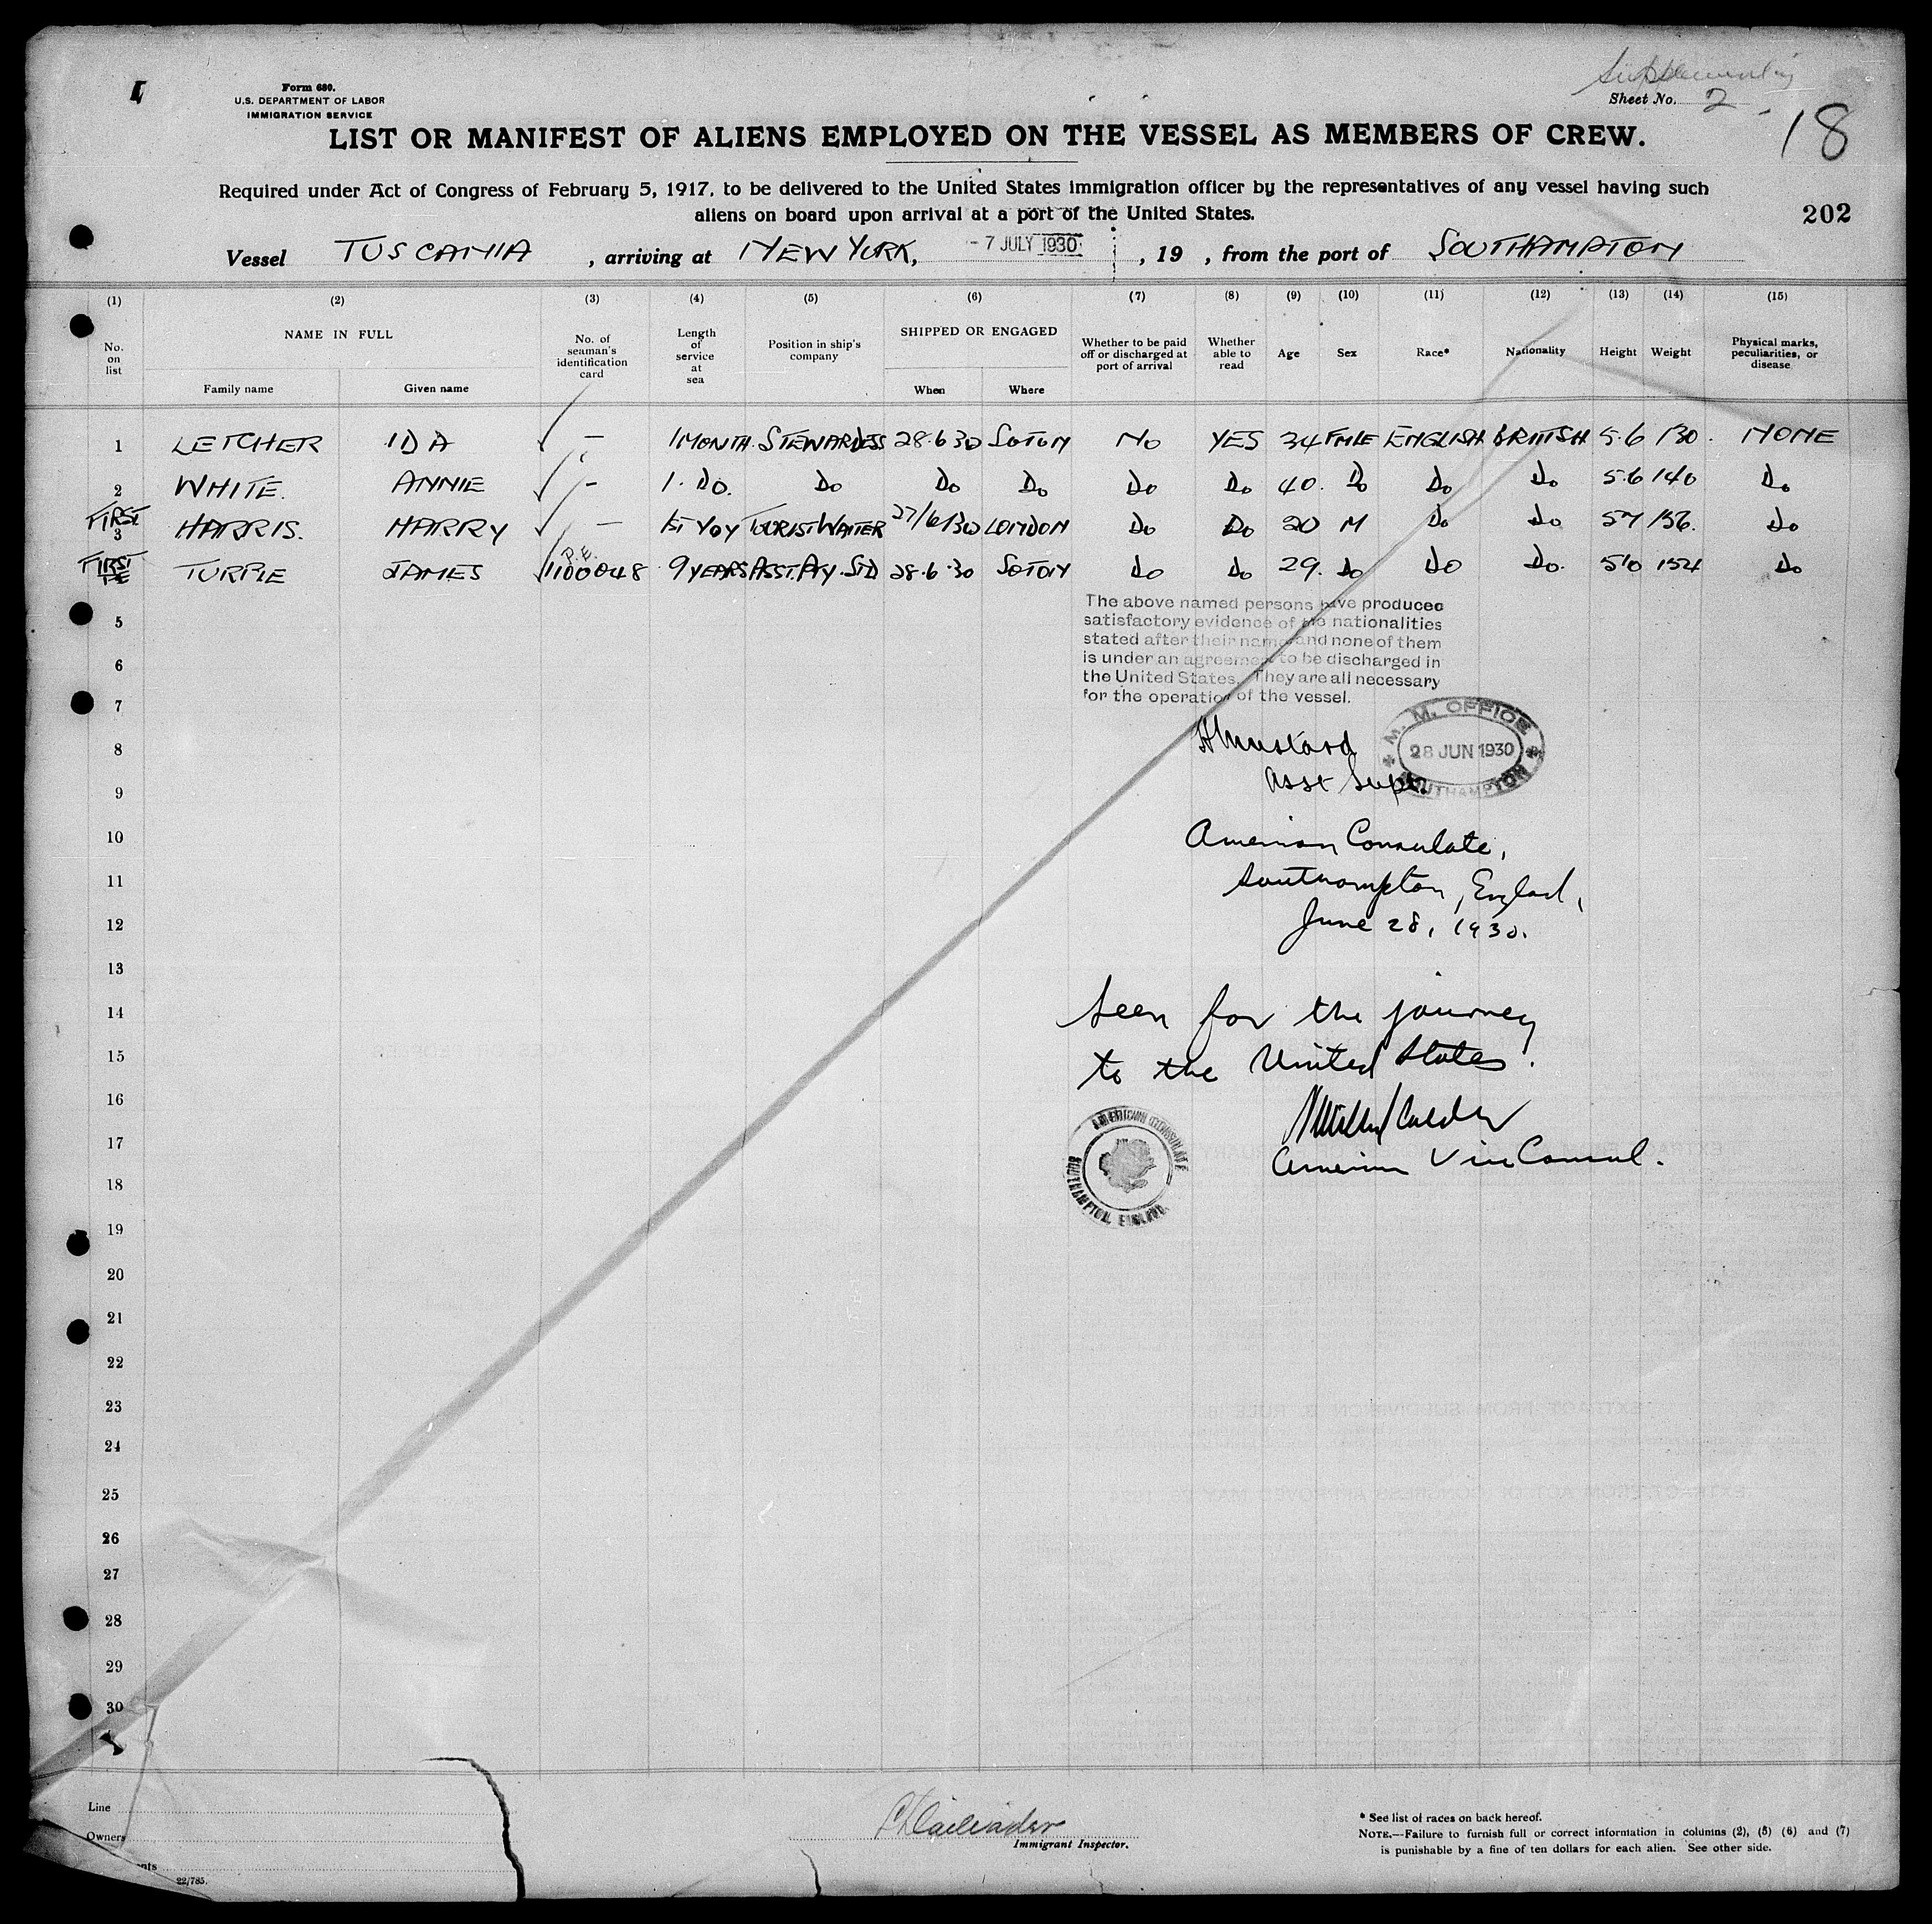 Supplementary
Form 680.
U.S. DEPARTMENT OF LABOR
IMMIGRATION SERVICE
Sheet No. 2
18
LIST OR MANIFEST OF ALIENS EMPLOYED ON THE VESSEL AS MEMBERS OF CREW.
Required under Act of Congress of February 5, 1917, to be delivered to the United States immigration officer by the representatives of any vessel having such
aliens on board upon arrival at a port of the United States.
202
Vessel TUSCANIA, arriving at NEW YORK, - 7 JULY 1930, 19 , from the port of SOUTHAMPTON
(1) (2) (3) (4) (5) (6) (7) (8) (9) (10) (11) (12) (13) (14) (15)
No. on list NAME IN FULL Family name Given name No. of seaman's identification card Length of service at sea Position in ship's company SHIPPED OR ENGAGED When Where Whether to be paid off or discharged at port of arrival Whether able to read Age Sex Race* Nationality Height Weight Physical marks, peculiarities, or disease
1 LETCHER IDA - 1 MONTH. STEWARDESS 28.6 30 SOTON NO YES 34 FMLE ENGLISH BRITISH 5.6 130. NONE
2 WHITE. ANNIE - 1. DO. DO DO DO DO DO 40. DO DO DO 5.6 140 DO
FIRST
3 HARRIS. HARRY - 1ST VOY TOURIST WAITER 27/6/30 LONDON DO DO 20 M DO DO 5 7 136. DO
FIRST
P.E.
TURPIE JAMES 1100048 9 YEARS ASST. PY. STD 28.6.30 SOTON DO DO 29. DO DO DO. 5 10 154 DO
The above named persons have produced
satisfactory evidence of the nationalities
stated after their name and none of them
is under an agreement to be discharged in
the United States. They are all necessary
for the operation of the vessel.
5
6
7
M. M. OFFICE
28 JUN 1930
SOUTHAMPTON
8
Asst Supt.
9
10 American Consulate,
11 Southampton, England,
12 June 28, 1930.
13
14 Seen for the journey
15 to the United States.
16
17 American Vice Consul.
AMERICAN CONSULATE
SOUTHAMPTON, ENGLAND.
18
19
20
21
22
23
24
25
26
27
28
29
30
Line
Owners
Immigrant Inspector.
* See list of races on back hereof.
NOTE.—Failure to furnish full or correct information in columns (2), (5) (6) and (7)
is punishable by a fine of ten dollars for each alien. See other side.
22/785.